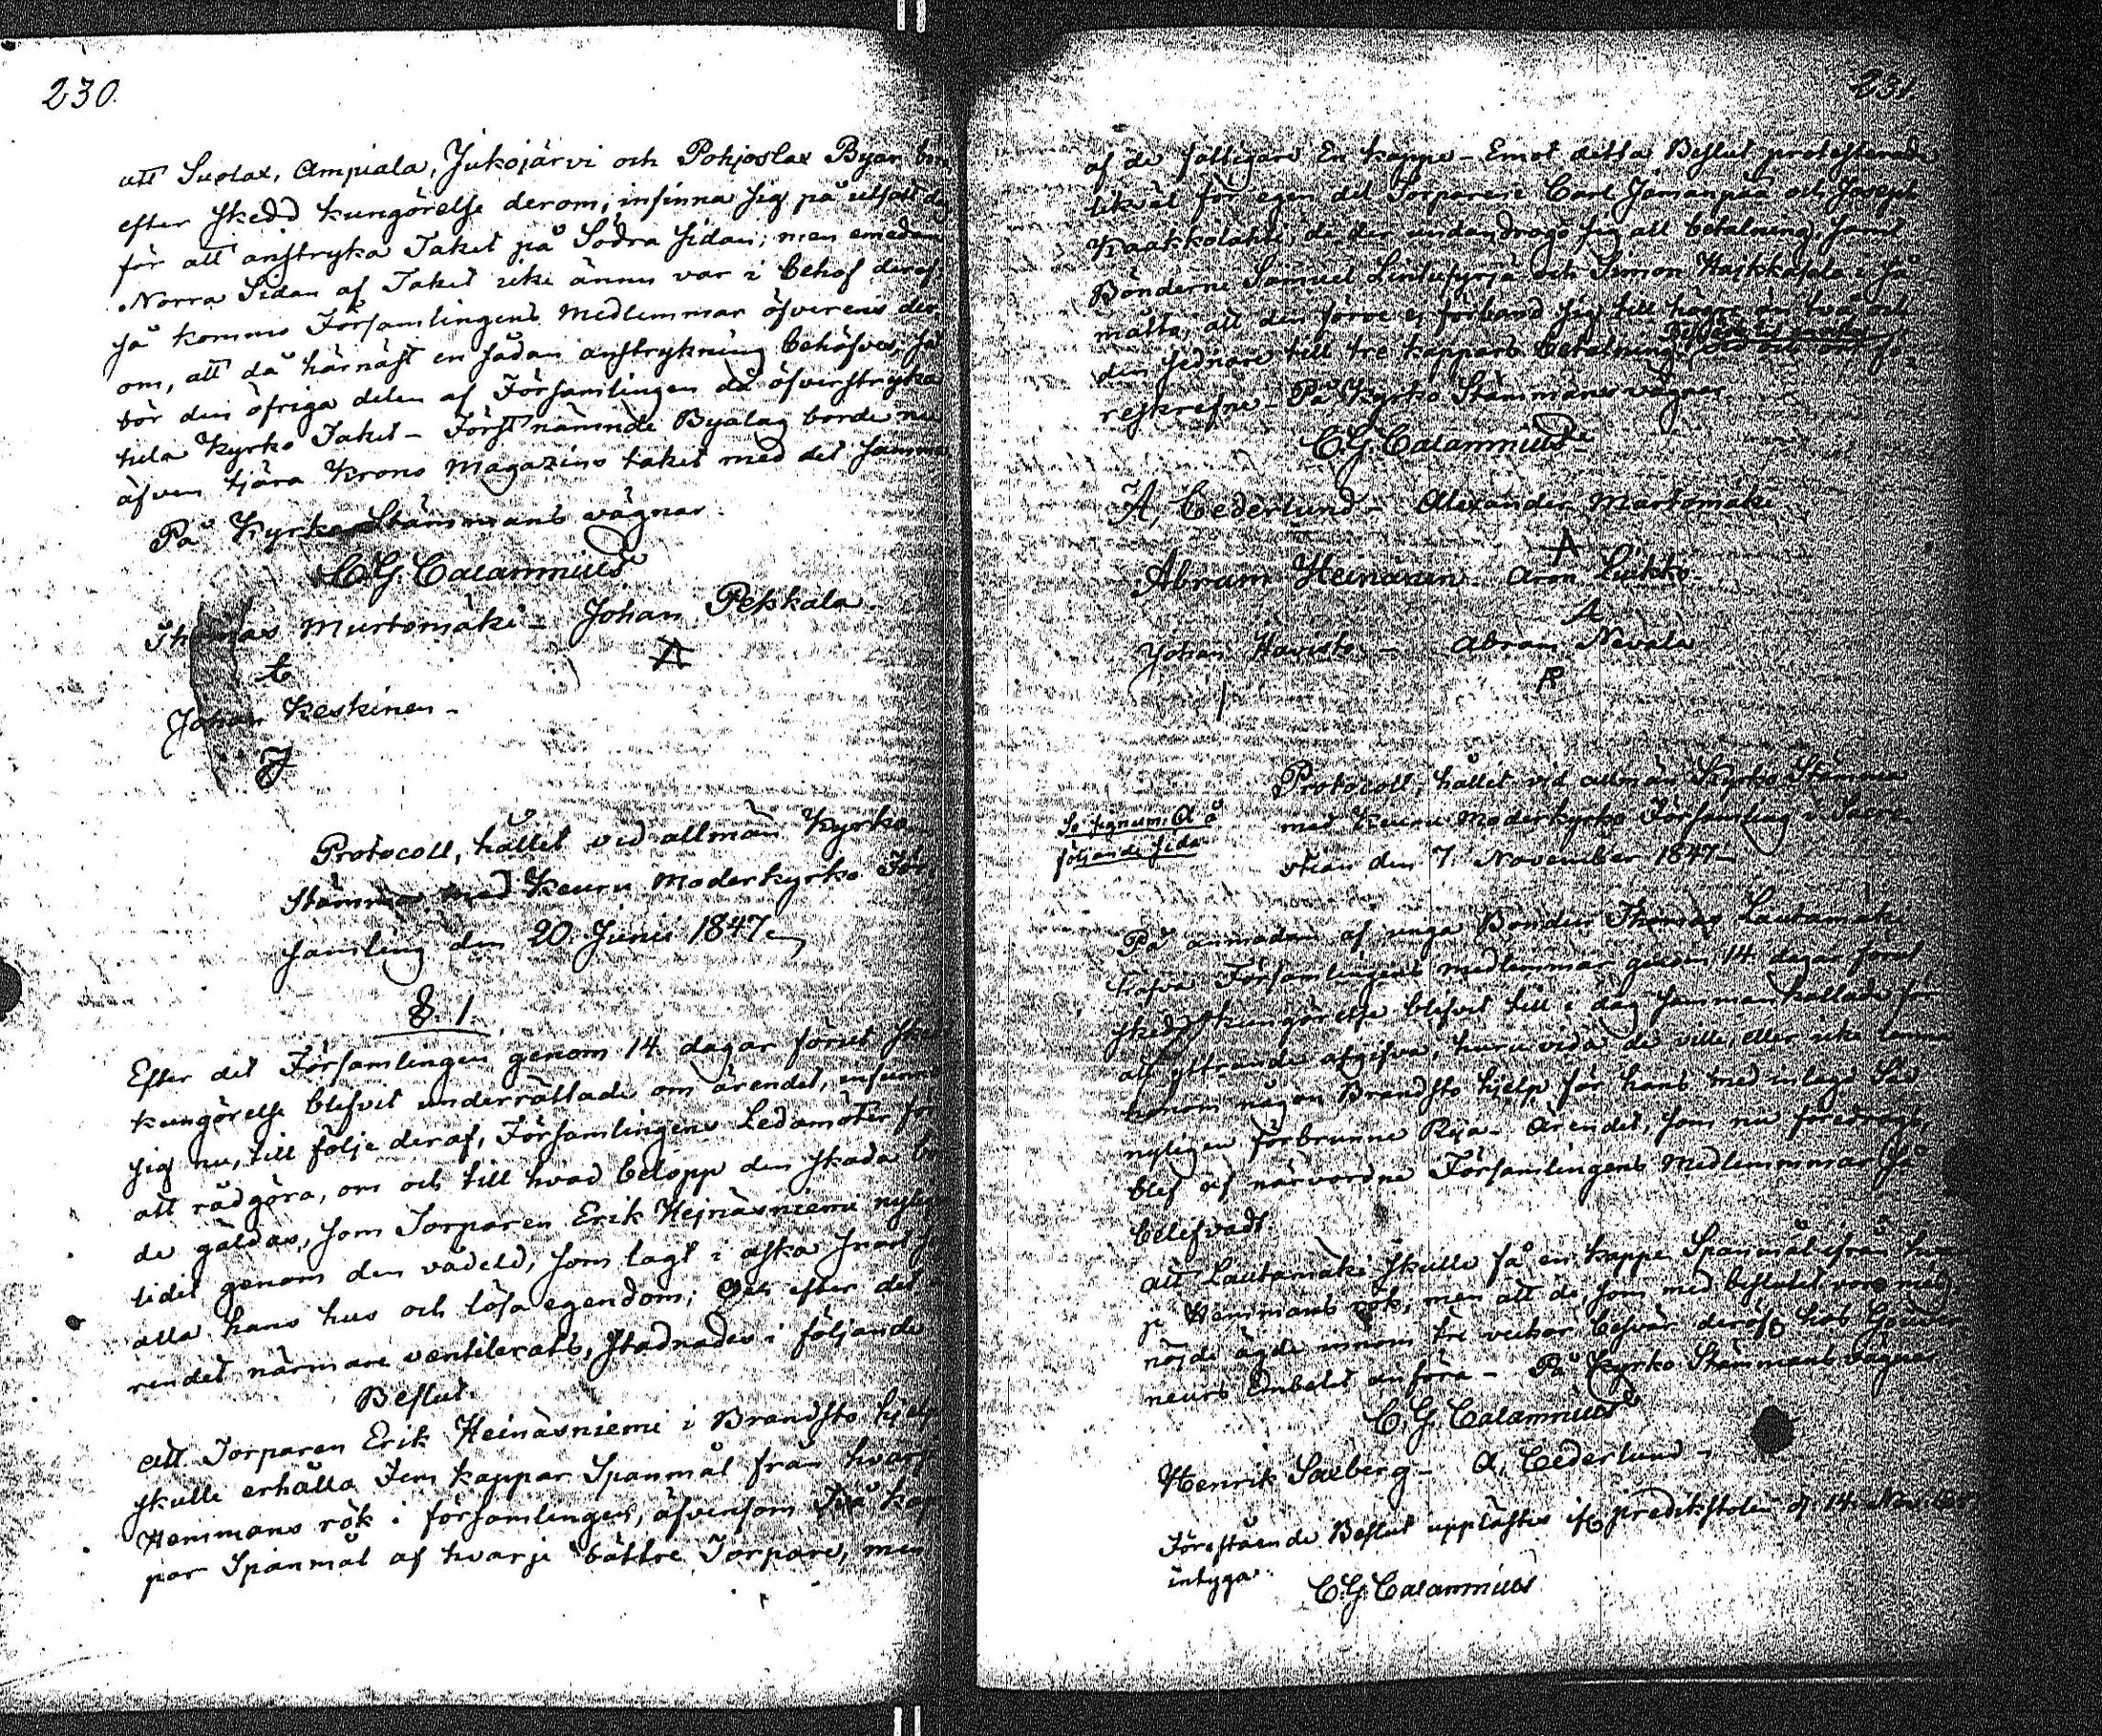 230.
att Suolax, Ampiala, Jukojärvi och Pohjoslax Byar bör,
efter skedd kungörelse derom, infinna sig på utsatt dag
för att anstryka Taket på Södra sidan; men emedan
Norra Sidan af Taket icke ännu var i behof deraf,
så kommo Församlingens Medlemmar öfverens der-
om, att då härnäst en sådan anstrykning behöfves, så
bör den öfriga delen af Församlingen då öfverstryka
hela Kyrko Taket – Förstnämnde Byalag borde nu
äfven tjära Krono Magazins taket med det samma
På Kyrko Stämmans vägnar.
C.G. Calamnius
Thomas Murtomäki – Johan Pekkala.
Johan Keskinen –
Protocoll, hållet vid allmän Kyrko
Stämma med Keuru Moderkyrko För-
samling den 20 Junii 1847.
§. 1.
Efter det Församlingen genom 14 dagar förut sked
kungörelse blifvit underrättade om ärendet, infunno
sig nu, till följe deraf, Församlingens Ledamöter för
att rådgöra, om och till hvad belopp den skada bor-
de gäldas, som Torparen Erik Heinäsniemi nylig
lidit genom den vådeld, som lagt i aska
alla hans hus och lösa egendom; Och efter det
rendet närmare ventilerats, stadnades i följande
Beslut.
att Torparen Erik Heinäsniemi i Brandsto hjelp
skulle erhålla Fem kappar Spanmål från hvart
Hemmans rök i församlingen, äfvensom Två kap
par Spanmål af hvarje bättre Torpare, men
231
af de fattigare En kappe – Emot detta Beslut protesterade
likväl för egen del Torparene Carl Jämänpää och Joseph
Kaakkolahti, de der undandrogo sig all betalning, samt
Bönderne Samuel Lintusyrjä och Simon i så
måtto, att den förre ej förband sig till högre än två och
den sednare till tre kappars betalning
reskrefne – På Kyrko Stämmans vägnar
C.G. Calamnius
A, Cederlund – Alexander Martomäki
Abram Heinänen – Aron Liukko –
Johan Havisto – Abram Nevala
Protocoll, hållet vid allmän Kyrko Stämma
med Keuru Moderkyrko Församling i Sacri-
stian den 7 November 1847 –
Se signum A å
följande sida
På anmodan af unga Bonden Thomas Lautamäki
hafva Församlingens medlemmar genom 14 dagar förut
skedd kungörelse blifvit till i dag sammankallade för
att yttrande afgifva, huruvida de ville, eller icke lemna
honom någon Brandsto hjelp för hans med inlagd Säd
nyligen förbrunne Ria – Ärendet, som nu föredrogs,
blef af närvordne Församlingens Medlemmar så
belefvadt
att Lautamäki skulle få en kappe Spanmål ifrån hvar-
je Hemmans rök; men att de, som med beslutet voro miss-
nöjde ägde innom tre veckor besvär deröfver hos Gouver-
neurs Embetet anföra – På Kyrko Stämmans vägnar
C.G. Calamnius
Henrik Saxberg – A, Cederlund –
Förestående Beslut upplästes if. predikstolen d. 14
intygar.
C.G. Calamnius